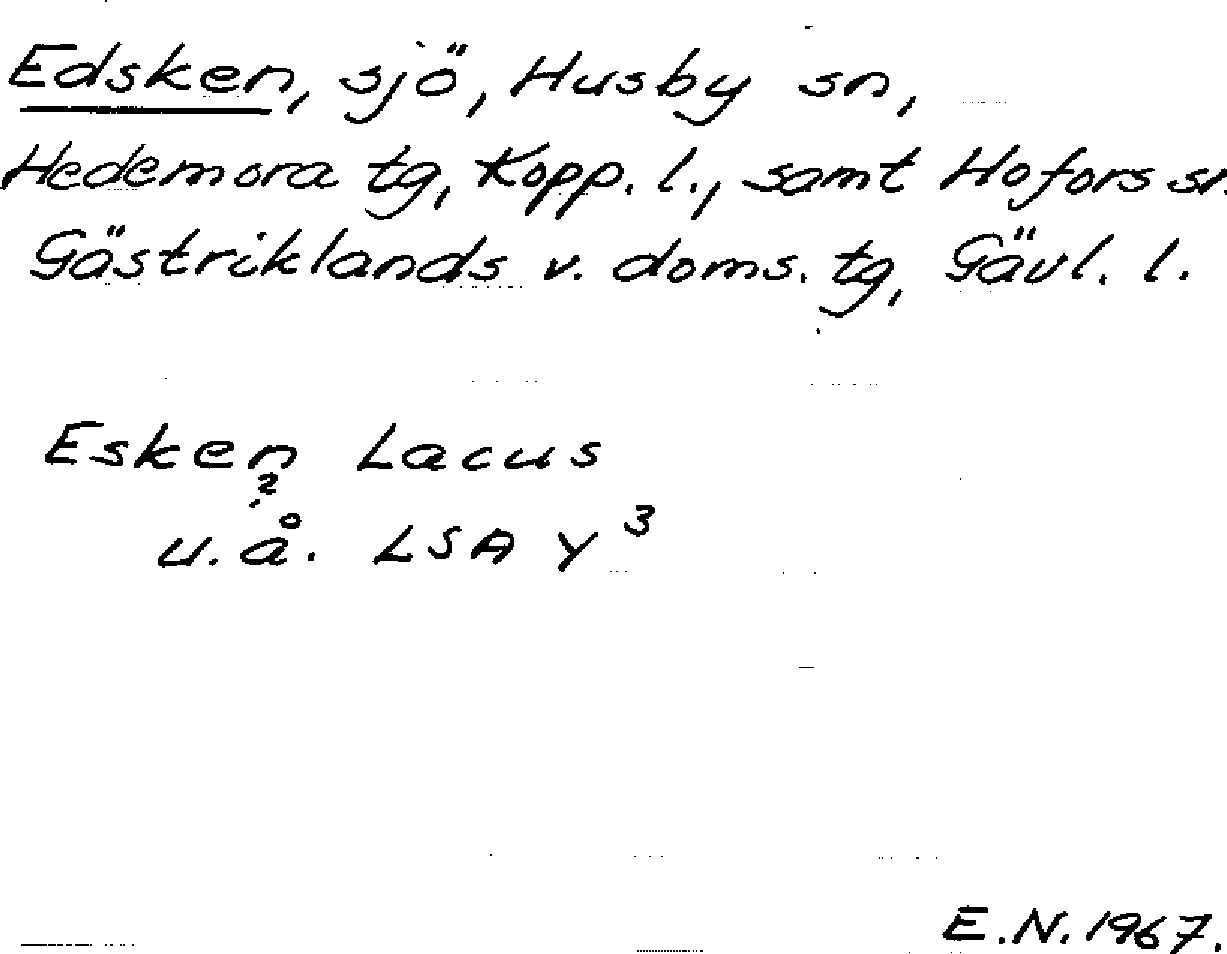 Edsken, sjö, Husby sn,
Hedemora tg, Kopp. l., samt Hofors sn.
Gästriklands v. doms. tg, Gävl. l.
Esken Lacus
?
u.å. LSA Y³
E.N. 1967.